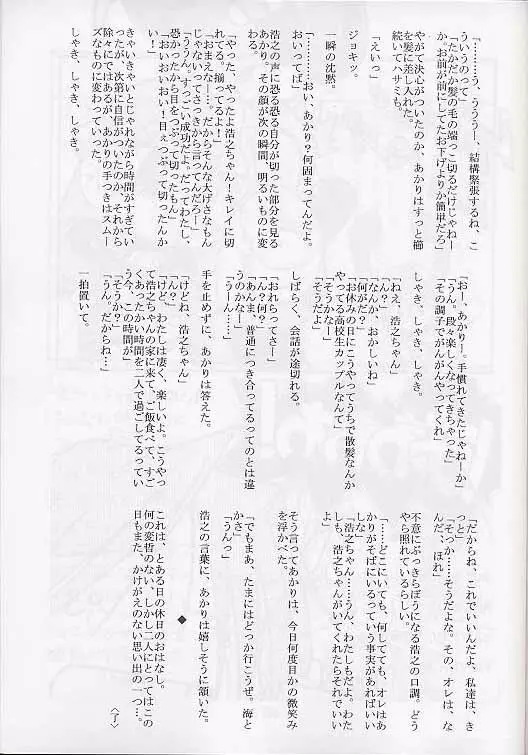 「………う、うううー、結構緊張するね、こ
ういうのって」
「たかだか髪の毛の端っこ切るだけじゃねー
か。お前が前にしてたお下げよりか簡単だろ」
やがて決心がついたのか、あかりはすっと櫛
を髪に差し入れた。
続いてハサミも。
「えいっ」
ジョキッ。
一瞬の沈黙。
「…………おい、あかり？何固まってんだよ。
おいってば」
浩之の声に恐る恐る自分が切った部分を見る
あかり。その顔が次の瞬間、明るいものに変
わる。
「やった、やったよ浩之ちゃん！キレイに切
れてる。揃ってるよ！」
「おまえなー…。だからそんな大げさなもん
じゃないってさっきから言ってんだろー」
「ううん。すっごい成功だよ。だってわたし、
恐かったから目をつぶって切ったもん」
「おいおいおい！目ぇつぶって切ったんか
い！」
きゃいきゃいとじゃれながら時間がすぎてい
ったが、次第に自信がついたのか、それから
除々にではあるが、あかりの手つきはスムー
ズなものに変わっていった。
しゃき、しゃき、しゃき。
「おー、あかりー。手慣れてきたじゃねーか」
「うん。段々楽しくなってきちゃった」
「その調子でがんがんやってくれ」
しゃき、しゃき、しゃき。
「ねえ、浩之ちゃん」
「ん？」
「なんか、おかしいね」
「何がだ？」
「お休みの日にこうやってうちで散髪なんか
やってる高校生カップルなんて」
「そうかなー」
「そうだよ」
しばらく、会話が途切れる。
「おれらってさー」
「ん？何？」
「あんま、普通につき合ってるってのとは違
うのかなー」
「うーん……」
手を止めずに、あかりは答えた。
「けどね、浩之ちゃん」
「ん？」
「けど、わたしは凄く、楽しいよ。こうやっ
て浩之ちゃんの家に来て、ご飯食べて、すご
くあったかい時間を二人で過ごしてるってい
う今、この時間が」
「そうか？」
「うん。だからね…」
一拍置いて。
「だからね、これでいいんだよ、私達は、き
っと」
「そっか……そうだよな。その、オレは、な
んだ、ほれ」
不意にぶっきらぼうになる浩之の口調。どう
やら照れているらしい。
「……どこにいても、何してても、オレはあ
かりがそばにいるっていう事実があればいい
しな」
「浩之ちゃん……うん、わたしもだよ。わた
しも、浩之ちゃんがいてくれたらそれでいい
よ」
そう言ってあかりは、今日何度目かの微笑み
を浮かべた。
「でもまあ、たまにはどっか行こうぜ、海と
かさ」
「うんっ」
浩之の言葉に、あかりは嬉しそうに頷いた。
◆
これは、とある日の休日のおはなし。
何の変哲のない、しかし二人にとってはこの
日もまた、かけがえのない思い出の一つ…。
〈了〉